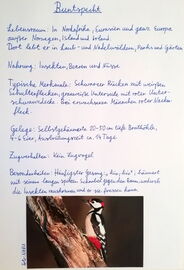 Buntspecht
Lebensraum: In Nordafrika, Eurasien und ganz Europa
außer Norwegen, Island und Irland
Dort lebt er in Laub- und Nadelwäldern, Parks und Gärten
Nahrung: Insekten, Beeren und Nüsse
Typische Merkmale: Schwarzer Rücken mit weißen
Schulterflecken, grauweiße Unterseite mit roter Unter-
schwanzdecke. Bei erwachsenen Männchen roter Nacken-
fleck.
Gelege: Selbstgezimmerte 20-50 cm tiefe Bruthöhle,
4-6 Eier, Ausbrütungszeit ca. 14 Tage
Zugverhalten: Kein Zugvogel
Besonderheiten: Häufigster
mit seinem langen spitzen Schnabel gegen den Baum, wodurch
die Insekten rauskommen und er sie fressen kann.